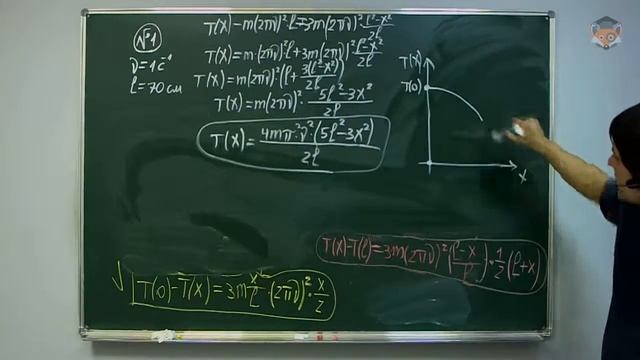 №1
ν=1 c⁻¹
l=70 см
T(x)-m(2πν)²·l=3m(2πν)²·(l²-x²)/2l
T(x)=m·(2πν)²·l+3m(2πν)²·(l²-x²)/2l
T(x)=m(2πν)²(l+3(l²-x²)/2l)
T(x)=m(2πν)²·(5l²-3x²)/2l
T(x)=4mπ²·ν²·(5l²-3x²)/2l
T(x)
T(0)
x
T(x)-T(l)=3m(2πν)²·((l-x)/l)·1/2(l+x)
T(0)-T(x)=3m x/l·(2πν)²·x/2